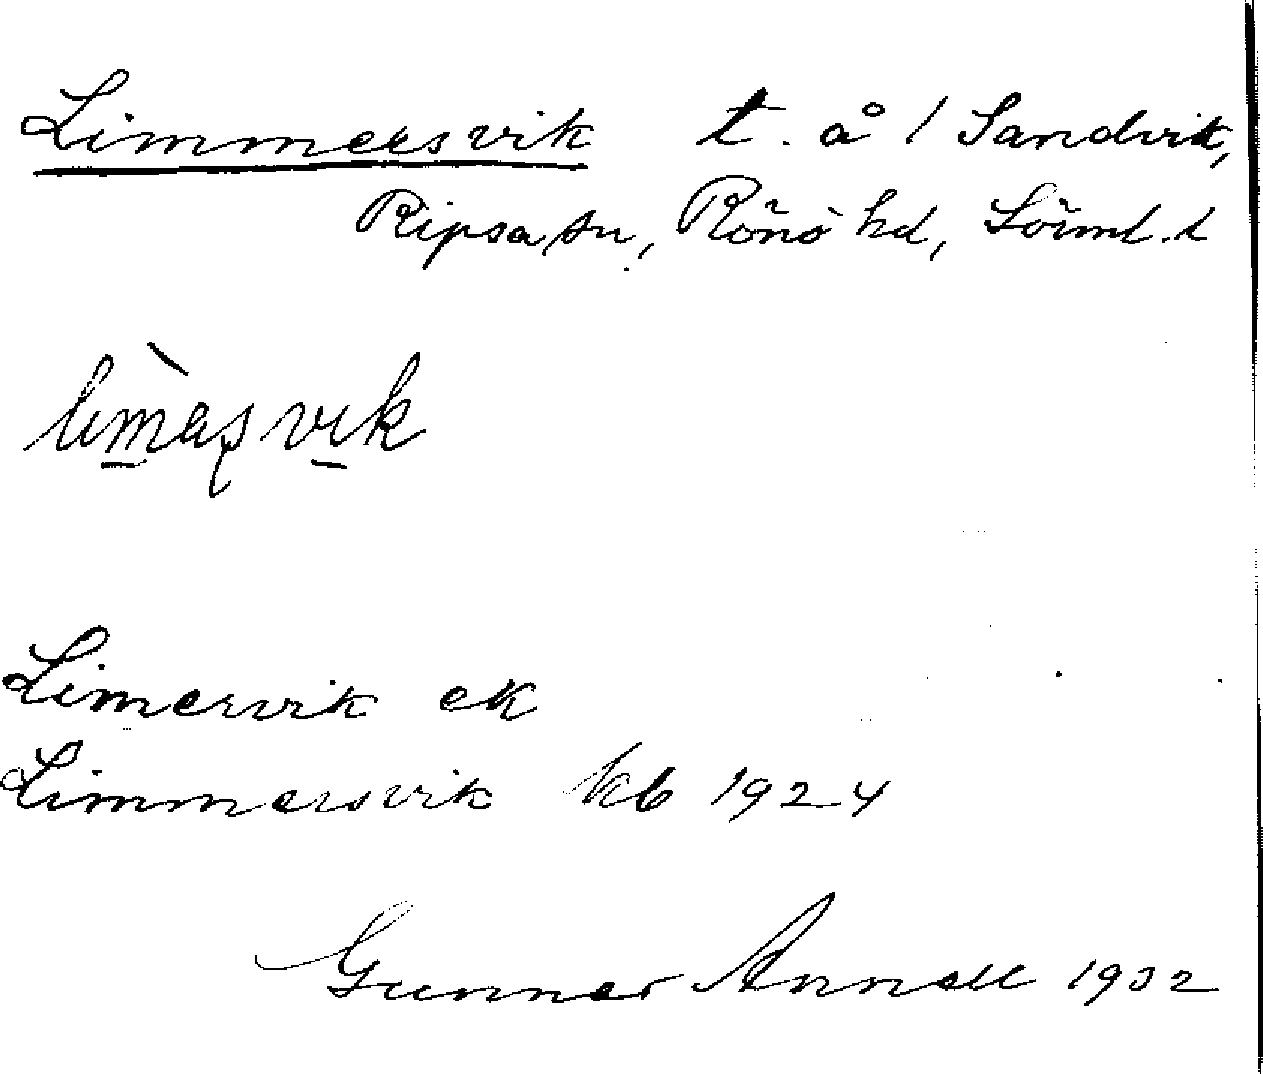 Limmersvik t. å 1 Sandvik,
Ripsa sn, Rönö hd, Sörml. l
Limervik ek
Limmersvik kb 1924
Gunnar Annell 1932